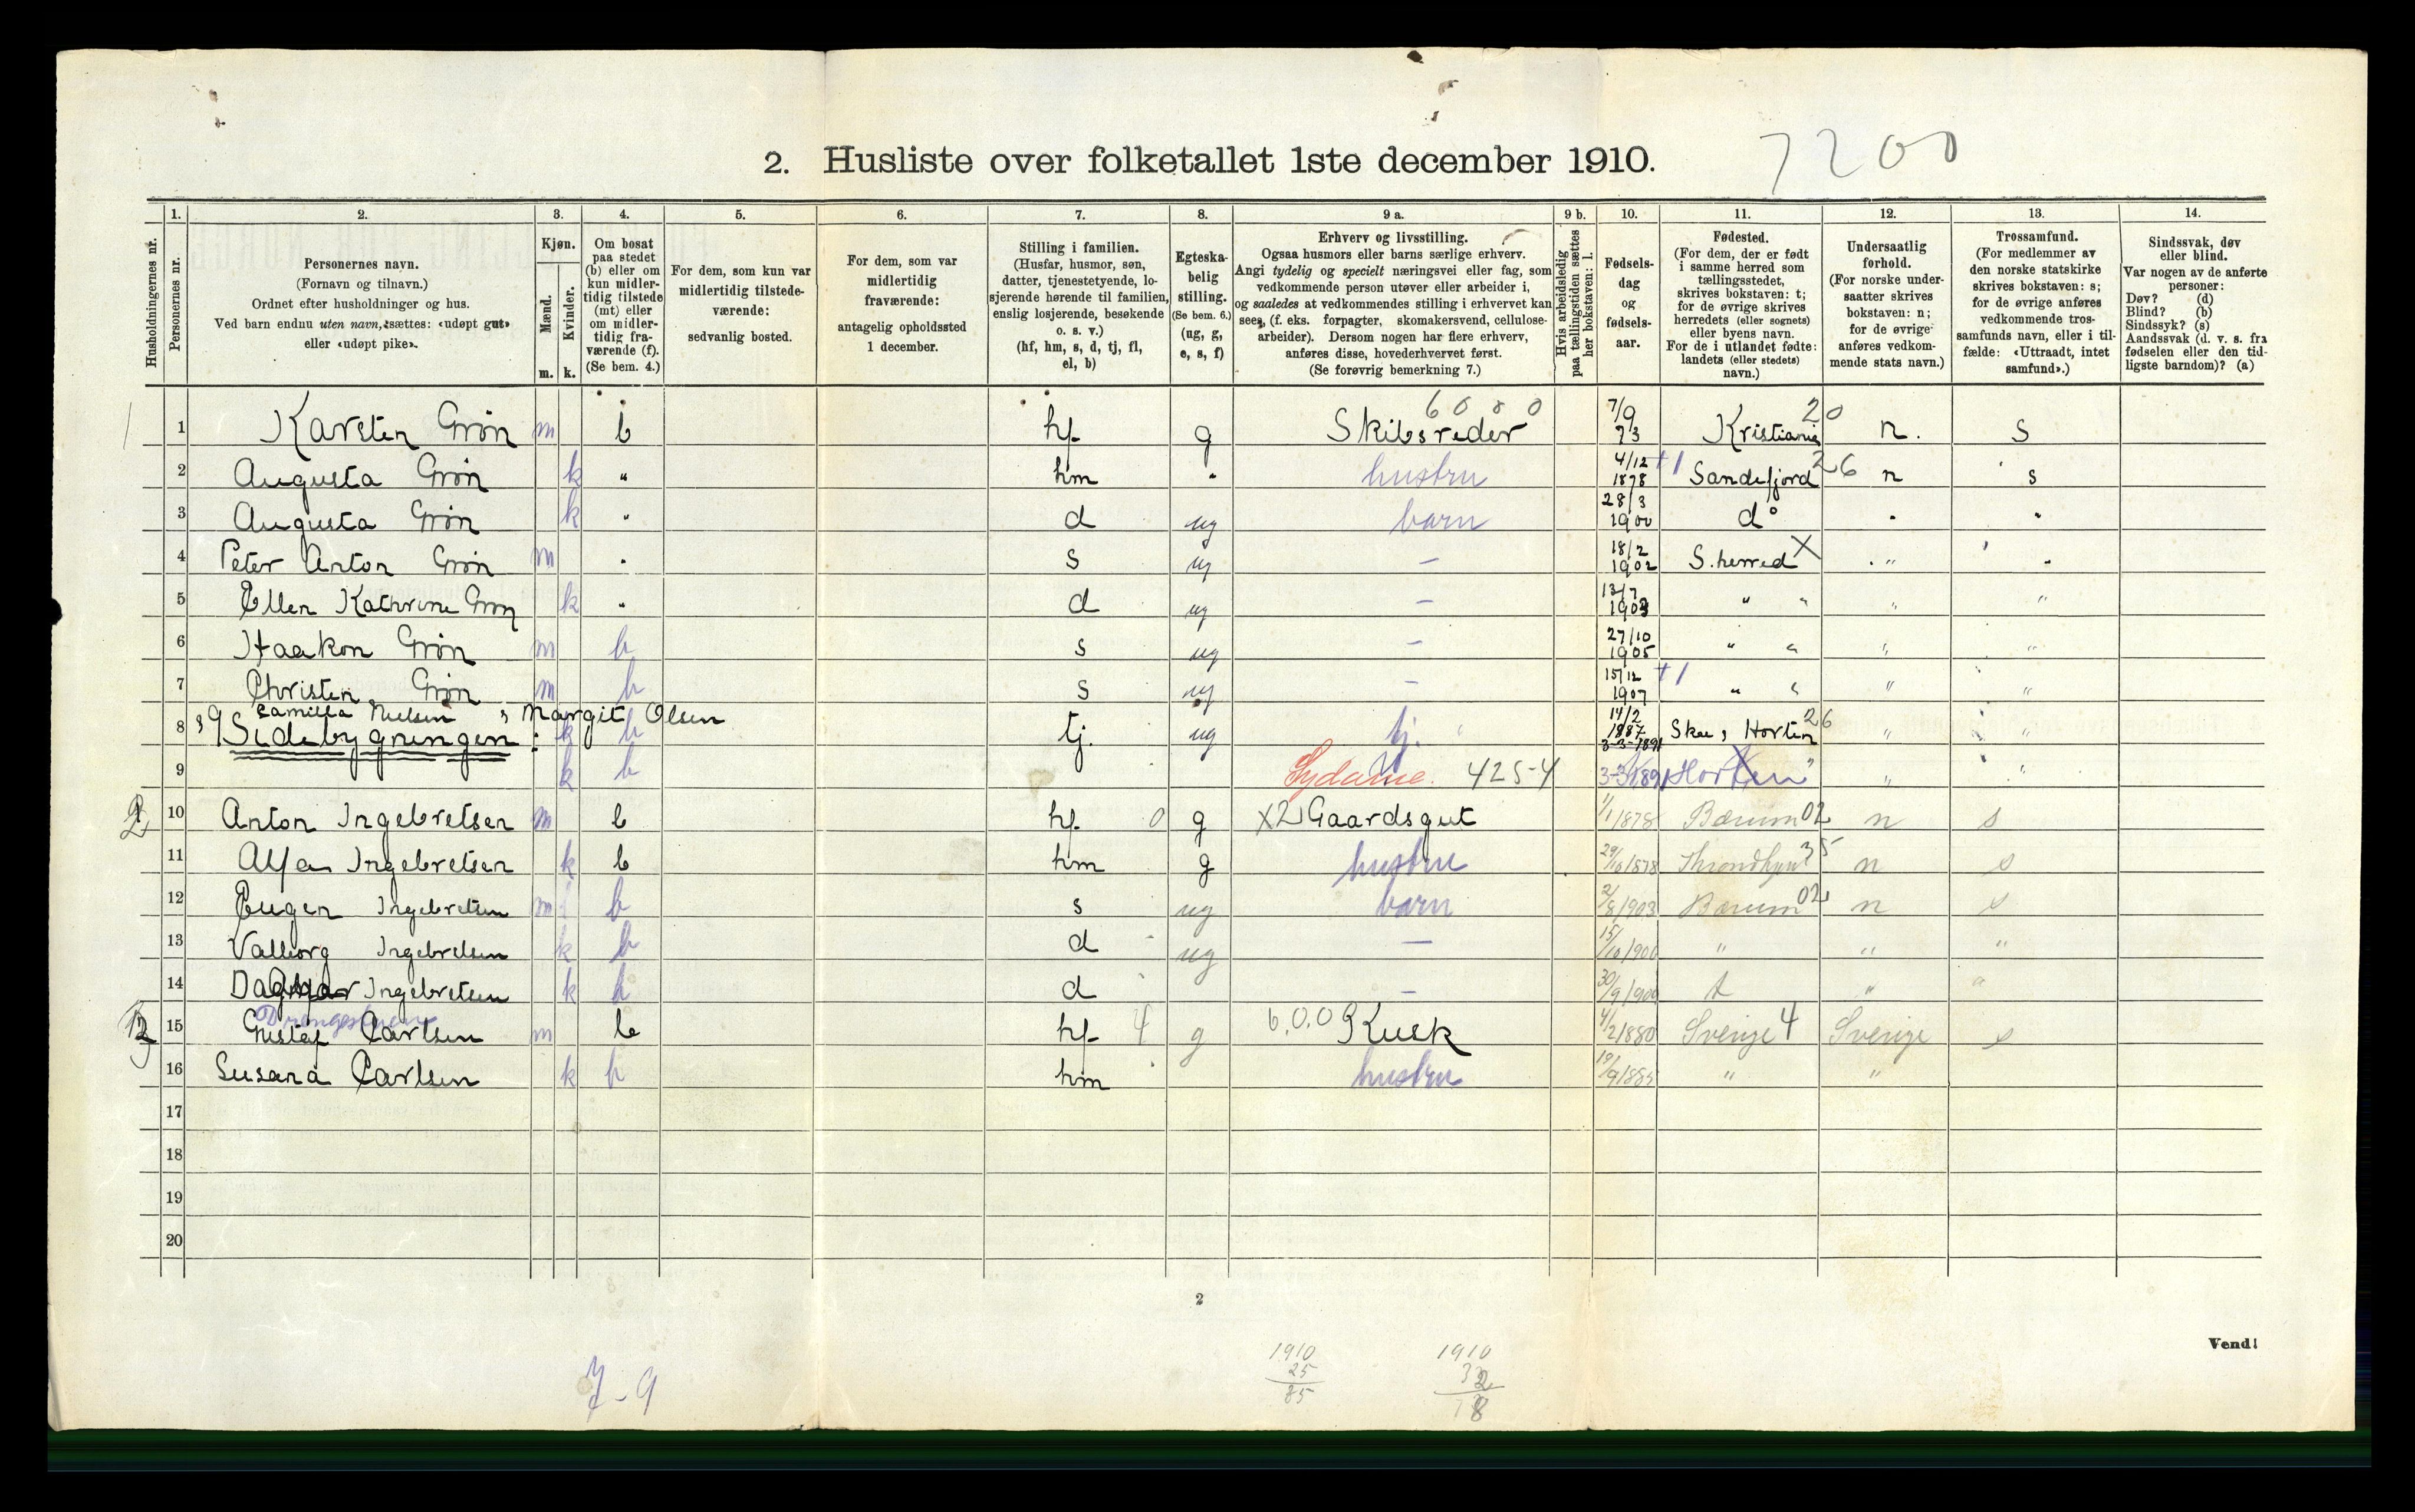 7200
2. Husliste over folketallet 1ste december 1910.
1. 2. 3. 4. 5. 6. 7. 8. 9 a. 9 b. 10. 11. 12. 13. 14.
Husholdningernes nr.
Personernes nr.
Personernes navn.
(Fornavn og tilnavn.)
Ordnet efter husholdninger og hus.
Ved barn endnu uten navn, sættes: «udøpt gut»
eller «udøpt pike».
Kjøn.
Mænd.
Kvinder.
m. k.
Om bosat
paa stedet
(b) eller om
kun midler-
tidig tilstede
(mt) eller
om midler-
tidig fra-
værende (f).
(Se bem. 4.)
For dem, som kun var
midlertidig tilstede-
værende:
sedvanlig bosted.
For dem, som var
midlertidig
fraværende:
antagelig opholdssted
1 december.
Stilling i familien.
(Husfar, husmor, søn,
datter, tjenestetyende, lo-
sjerende hørende til familien,
enslig losjerende, besøkende
o. s. v.)
(hf, hm, s, d, tj, fl,
el, b)
Egteska-
belig
stilling.
(Se bem. 6.)
(ug, g,
e, s, f)
Erhverv og livsstilling.
Ogsaa husmors eller barns særlige erhverv.
Angi tydelig og specielt næringsvei eller fag, som
vedkommende person utøver eller arbeider i,
og saaledes at vedkommendes stilling i erhvervet kan
sees, (f. eks. forpagter, skomakersvend, cellulose-
arbeider). Dersom nogen har flere erhverv,
anføres disse, hovederhvervet først.
(Se forøvrig bemerkning 7.)
Hvis arbeidsledig
paa tællingstiden sættes
her bokstaven: l.
Fødsels-
dag
og
fødsels-
aar.
Fødested.
(For dem, der er født
i samme herred som
tællingsstedet,
skrives bokstaven: t;
for de øvrige skrives
herredets (eller sognets)
eller byens navn.
For de i utlandet fødte:
landets (eller stedets)
navn.)
Undersaatlig
forhold.
(For norske under-
saatter skrives
bokstaven: n;
for de øvrige
anføres vedkom-
mende stats navn.)
Trossamfund.
(For medlemmer av
den norske statskirke
skrives bokstaven: s;
for de øvrige anføres
vedkommende tros-
samfunds navn, eller i til-
fælde: «Uttraadt, intet
samfund».)
Sindssvak, døv
eller blind.
Var nogen av de anførte
personer:
Døv? (d)
Blind? (b)
Sindssyk? (s)
Aandssvak (d. v. s. fra
fødselen eller den tid-
ligste barndom)? (a)
6080
1 1 Karsten Grøn m b hf g Skibsreder 7/9 73 Kristiania 20 n. s
2 Augusta Grøn k " hm " hustru 4/12 1878 +1 Sandefjord 26 n s
3 Augusta Grøn k " d ug barn 28/3 1900 do " "
4 Peter Anton Grøn m " s ug — 18/2 1902 S. herred X " "
5 Ellen Kathrine Grøn k " d ug — 13/7 1903 " " " "
6 Haakon Grøn m b s ug — 27/10 1905 " " " "
7 Christen Grøn m b s ug — 15/12 1907 +1 " " " "
Camilla Nielsen, Margit Olsen
8 Sidebygningen: k b tj. ug tj. 14/2 1887 3-3-1891 Skee, Horten 26 " "
9 k b Sydame. 425-4 3-3/1891 Horten " "
2 10 Anton Ingebretsen m b hf 0 g X2 Gaardsgut 1/1 1878 Bærum 02 n s
11 Alfa Ingebretsen k b hm g hustru 29/10 1878 Throndhjem 35 n s
12 Eugen Ingebretsen m b s ug barn 2/8 1903 Bærum 02 n s
13 Valborg Ingebretsen k b d ug — 15/10 1900 " " "
14 Dagmar Ingebretsen k b d — 30/9 1900 t " "
Drengestuen
3 15 Gustaf Carlsen m b hf 4 g 6.0.09 Kusk 4/2 1880 Sverige 4 Sverige s
16 Susana Carlsen k b hm hustru 10/9 1885 " "
17
18
19
20
2
Vend!
7-9
1910
25
85
1910
32
78